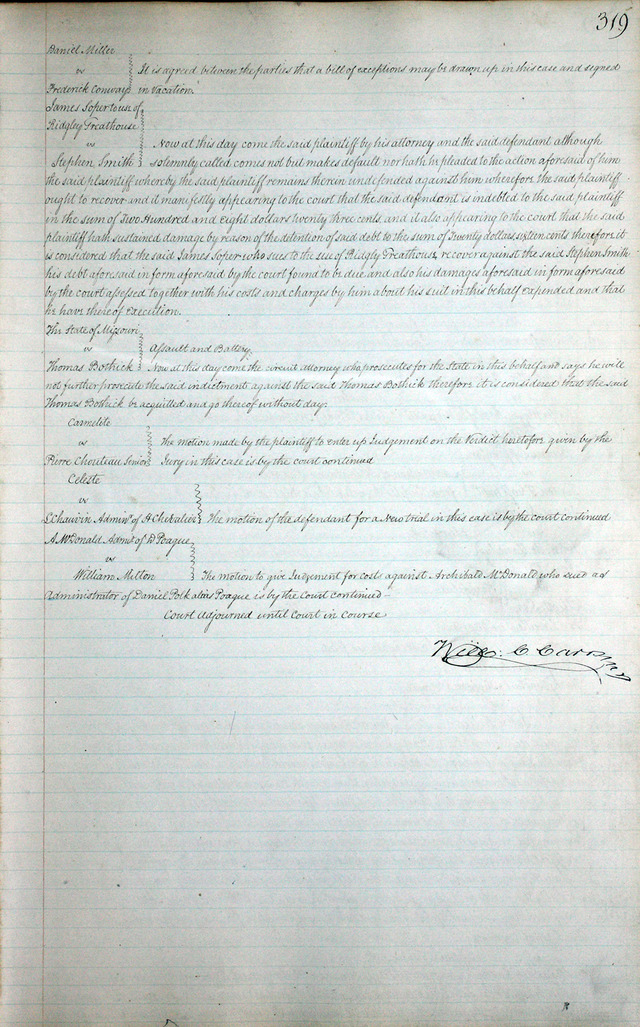 319
Daniel Miller
vs It is agreed between the parties that a bill of exceptions may be drawn up in this case and signed
Frederick Conways in Vacation.
James Soper to use of
Ridgley Greathouse
vs Now at this day come the said plaintiff by his attorney and the said defendant although
Stephen Smith solemnly called comes not but makes default nor hath he pleaded to the action aforesaid of him
the said plaintiff whereby the said plaintiff remains therein undefended against him wherefore the said plaintiff
ought to recover and it manifestly appearing to the court that the said defendant is indebted to the said plaintiff
in the sum of Two Hundred and Eight dollars twenty three cents and it also appearing to the court that the said
plaintiff hath sustained damage by reason of the detention of said debt to the sum of Twenty dollars sixteen cents therefore it
is considered that the said James Soper who sues to the use of Ridgly Greathouse recover against the said Stephen Smith
his debt aforesaid in form aforesaid by the court found to be due and also his damages aforesaid in form aforesaid
by the court assessed together with his costs and charges by him about his suit in this behalf expended and that
he have thereof execution.
The State of Missouri
vs Assault and Battery.
Thomas Bothick Now at this day come the circuit attorney who prosecutes for the State in this behalf and says he will
not further prosecute the said indictment against the said Thomas Bothick therefore it is considered that the said
Thomas Bothick be acquitted and go thereof without day.
Carmelite
vs The motion made by the plaintiff to enter up Judgement on the Verdict heretofore given by the
Pierre Chouteau Senior Jury in this case is by the court continued
Celeste
vs
L Chauvin Admins. of H Chevalier The motion of the defendant for a New trial in this case is by the court continued
A McDonald Adms. of D Poague
vs
William Milton The motion to give Judgement for costs against Archibald McDonald who sued as
Administrator of Daniel Polk alias Poague is by the Court continued
Court Adjourned until Court in Course
Will: C Carr